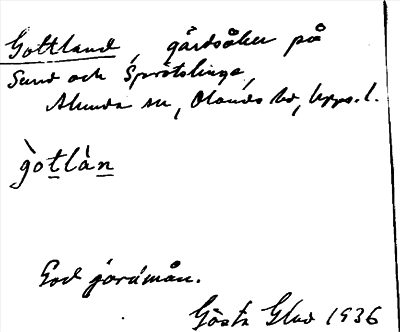 Gottland, gårdsåker på
Sund och Sprötslinge,
Alunda sn, Olands hd, Upps. l.
gòtlàn
God jordmån.
Gösta Glad 1936